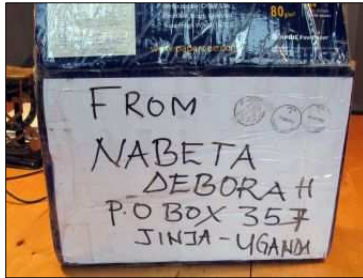 80g/m²
FROM
NABETA
DEBORAH
P.O BOX 357
JINJA - UGANDA